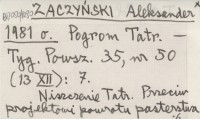 ZACZYŃSKI Aleksander
1981 o. Pogrom Tatr. —
Tyg. Powsz. 35, nr 50
(13 XII): 7.
Niszczenie Tatr. Przeciw
projektowi powrotu pasterstwa